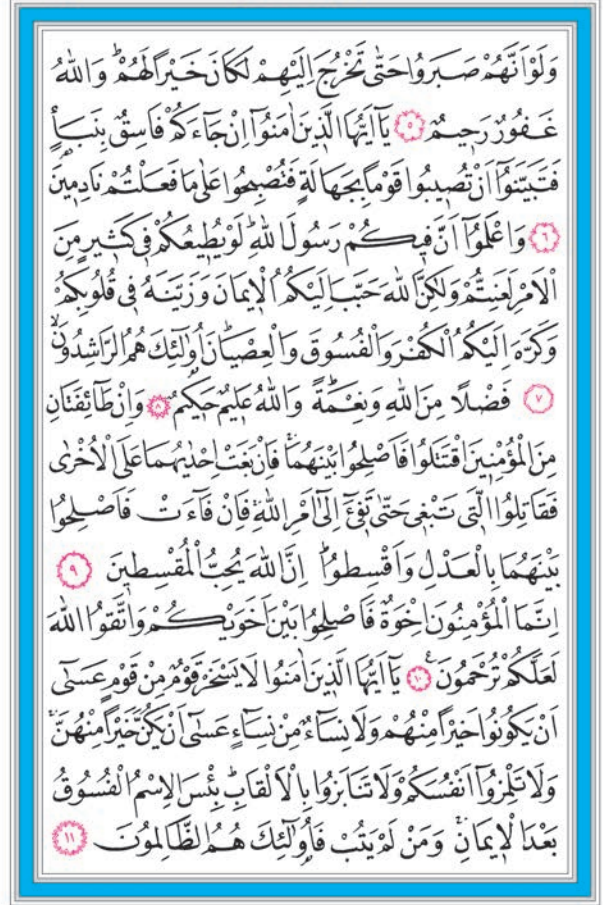 وَلَوْ اَنَّهُمْ صَبَرُوا حَتّٰى تَخْرُجَ اِلَيْهِمْ لَكَانَ خَيْرًا لَهُمْۜ وَاللّٰهُ
غَفُورٌ رَحِيمٌ ﴿٥﴾ يَٓا اَيُّهَا الَّذِينَ اٰمَنُٓوا اِنْ جَٓاءَكُمْ فَاسِقٌ بِنَبَأٍ
فَتَبَيَّنُٓوا اَنْ تُصِيبُوا قَوْمًا بِجَهَالَةٍ فَتُصْبِحُوا عَلٰى مَا فَعَلْتُمْ نَادِمِينَ
﴿٦﴾ وَاعْلَمُٓوا اَنَّ فِيكُمْ رَسُولَ اللّٰهِۜ لَوْ يُطِيعُكُمْ فِي كَثِيرٍ مِنَ
الْاَمْرِ لَعَنِتُّمْ وَلٰكِنَّ اللّٰهَ حَبَّبَ اِلَيْكُمُ الْاِيمَانَ وَزَيَّنَهُ فِي قُلُوبِكُمْ
وَكَرَّهَ اِلَيْكُمُ الْكُفْرَ وَالْفُسُوقَ وَالْعِصْيَانَۜ اُو۬لٰٓئِكَ هُمُ الرَّاشِدُونَۙ
﴿٧﴾ فَضْلًا مِنَ اللّٰهِ وَنِعْمَةًۜ وَاللّٰهُ عَلِيمٌ حَكِيمٌ ﴿٨﴾ وَاِنْ طَٓائِفَتَانِ
مِنَ الْمُؤْمِنِينَ اقْتَتَلُوا فَاَصْلِحُوا بَيْنَهُمَاۚ فَاِنْ بَغَتْ اِحْدٰيهُمَا عَلَى الْاُخْرٰى
فَقَاتِلُوا الَّتِي تَبْغِي حَتّٰى تَفِٓيءَ اِلٰٓى اَمْرِ اللّٰهِۚ فَاِنْ فَٓاءَتْ فَاَصْلِحُوا
بَيْنَهُمَا بِالْعَدْلِ وَاَقْسِطُواۜ اِنَّ اللّٰهَ يُحِبُّ الْمُقْسِطِينَ ﴿٩﴾
اِنَّمَا الْمُؤْمِنُونَ اِخْوَةٌ فَاَصْلِحُوا بَيْنَ اَخَوَيْكُمْ وَاتَّقُوا اللّٰهَ
لَعَلَّكُمْ تُرْحَمُونَ۟ ﴿١٠﴾ يَٓا اَيُّهَا الَّذِينَ اٰمَنُوا لَا يَسْخَرْ قَوْمٌ مِنْ قَوْمٍ عَسٰٓى
اَنْ يَكُونُوا خَيْرًا مِنْهُمْ وَلَا نِسَٓاءٌ مِنْ نِسَٓاءٍ عَسٰٓى اَنْ يَكُنَّ خَيْرًا مِنْهُنَّۚ
وَلَا تَلْمِزُٓوا اَنْفُسَكُمْ وَلَا تَنَابَزُوا بِالْاَلْقَابِۜ بِئْسَ الِاسْمُ الْفُسُوقُ
بَعْدَ الْاِيمَانِۚ وَمَنْ لَمْ يَتُبْ فَاُو۬لٰٓئِكَ هُمُ الظَّالِمُونَ ﴿١١﴾